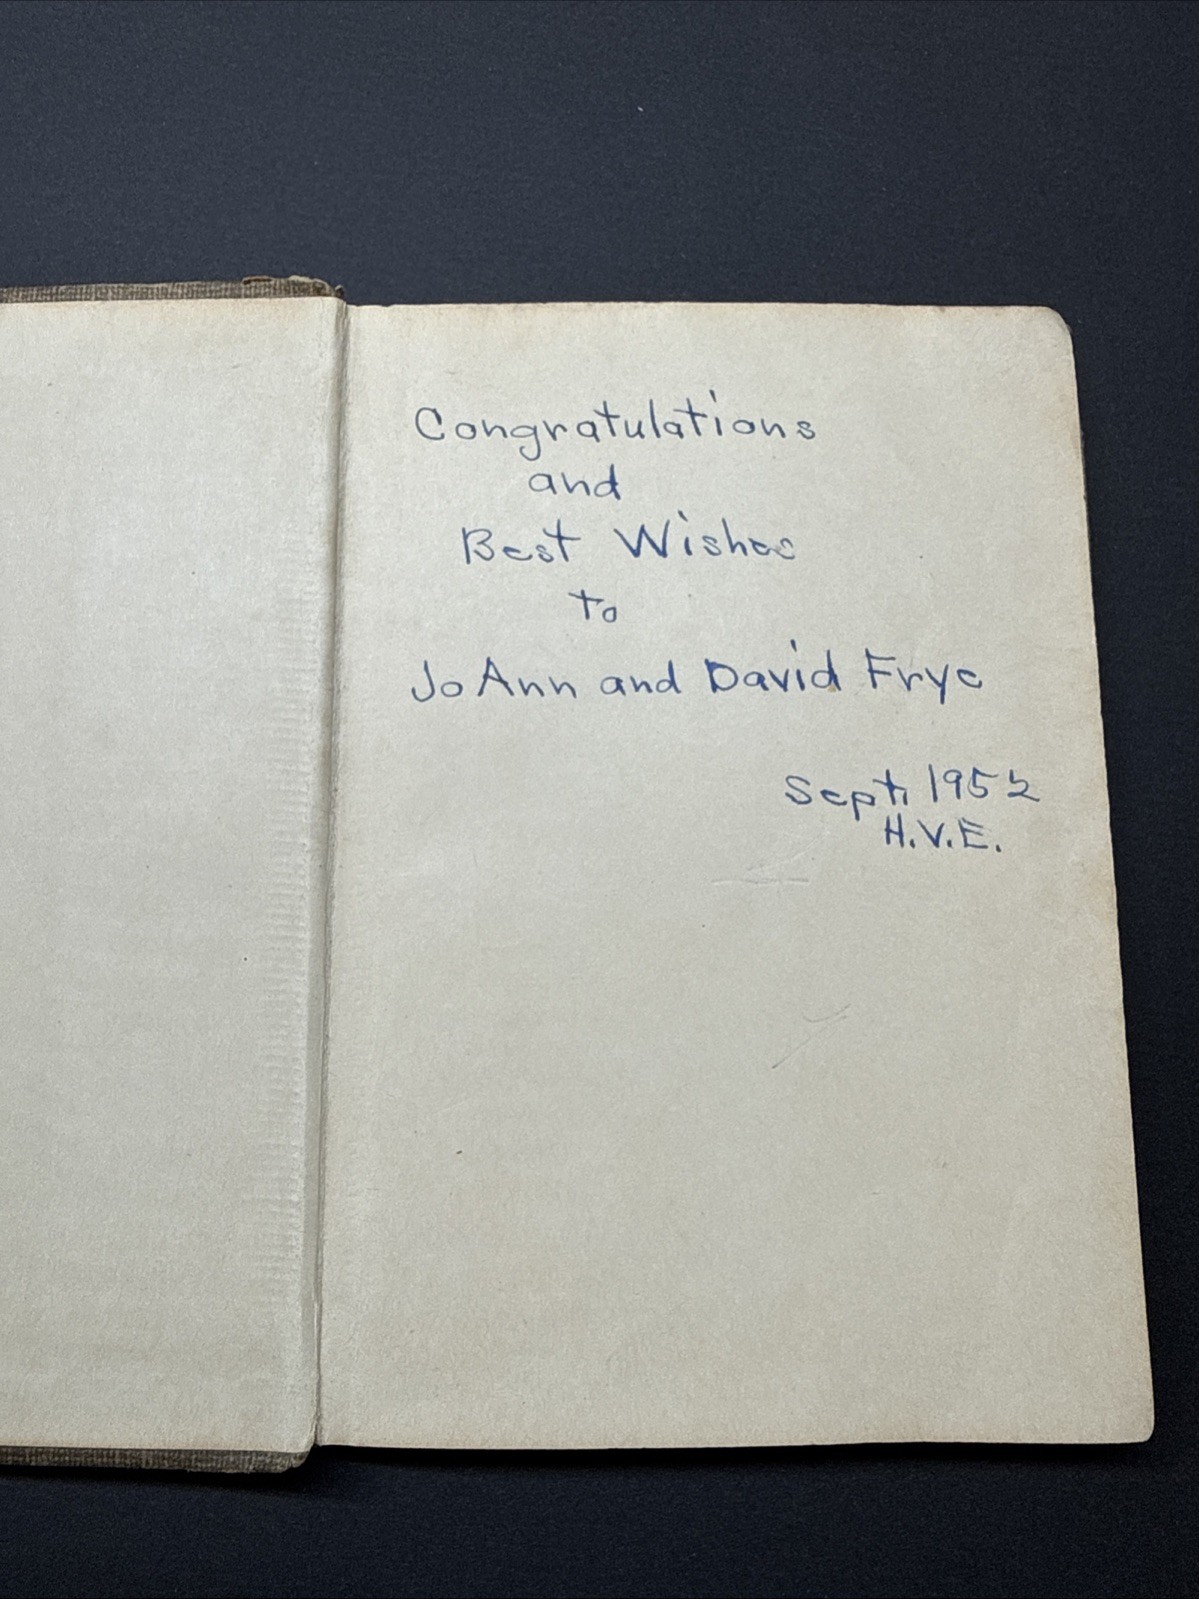 Congratulations
and
Best Wishes
to
JoAnn and David Frye
Sept. 1952
H.V.E.